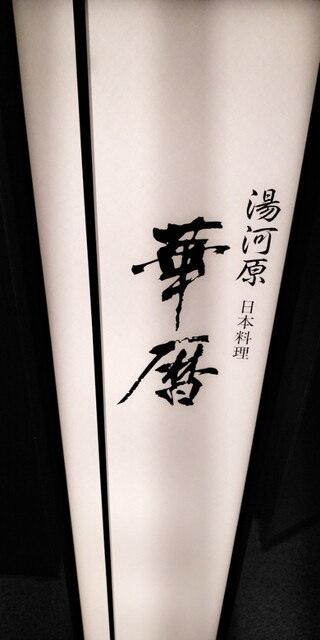 湯河原
日本料理
華暦